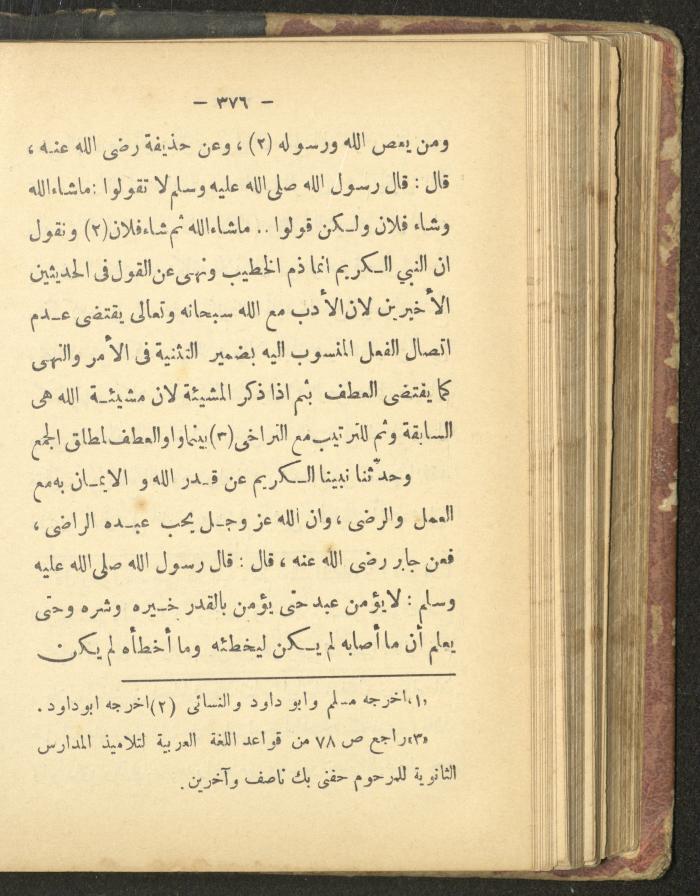 — ٣٧٦ —
ومن يعص الله ورسوله (٢) ، وعن حذيفة رضى الله عنه ،
قال : قال رسول الله صلى الله عليه وسلم لا تقولوا : ماشاء الله
وشاء فلان ولكن قولوا .. ماشاء الله ثم شاء فلان (٢) ونقول
ان النبي الكريم انما ذم الخطيب ونهى عن القول فى الحديثين
الأخيرين لان الأدب مع الله سبحانه وتعالى يقتضى عدم
اتصال الفعل المنسوب اليه بضمير التثنية فى الأمر والنهى
كما يقتضى العطف بثم اذا ذكر المشيئة لان مشيئة الله هى
السابقة وثم للترتيب مع التراخى (٣) بينما واو العطف لمطلق الجمع
وحدّثنا نبينا الكريم عن قدر الله و الايمان به مع
العمل والرضى ، وان الله عز وجل يحب عبده الراضى ،
فعن جابر رضى الله عنه ، قال : قال رسول الله صلى الله عليه
وسلم : لا يؤمن عبد حتى يؤمن بالقدر خيره وشره وحتى
يعلم أن ما أصابه لم يكن ليخطئه وما أخطأه لم يكن
«١» اخرجه مسلم وابو داود والنسائى (٢) اخرجه ابو داود .
«٣» راجع ص ٧٨ من قواعد اللغة العربية لتلاميذ المدارس
الثانوية للمرحوم حفنى بك ناصف وآخرين .